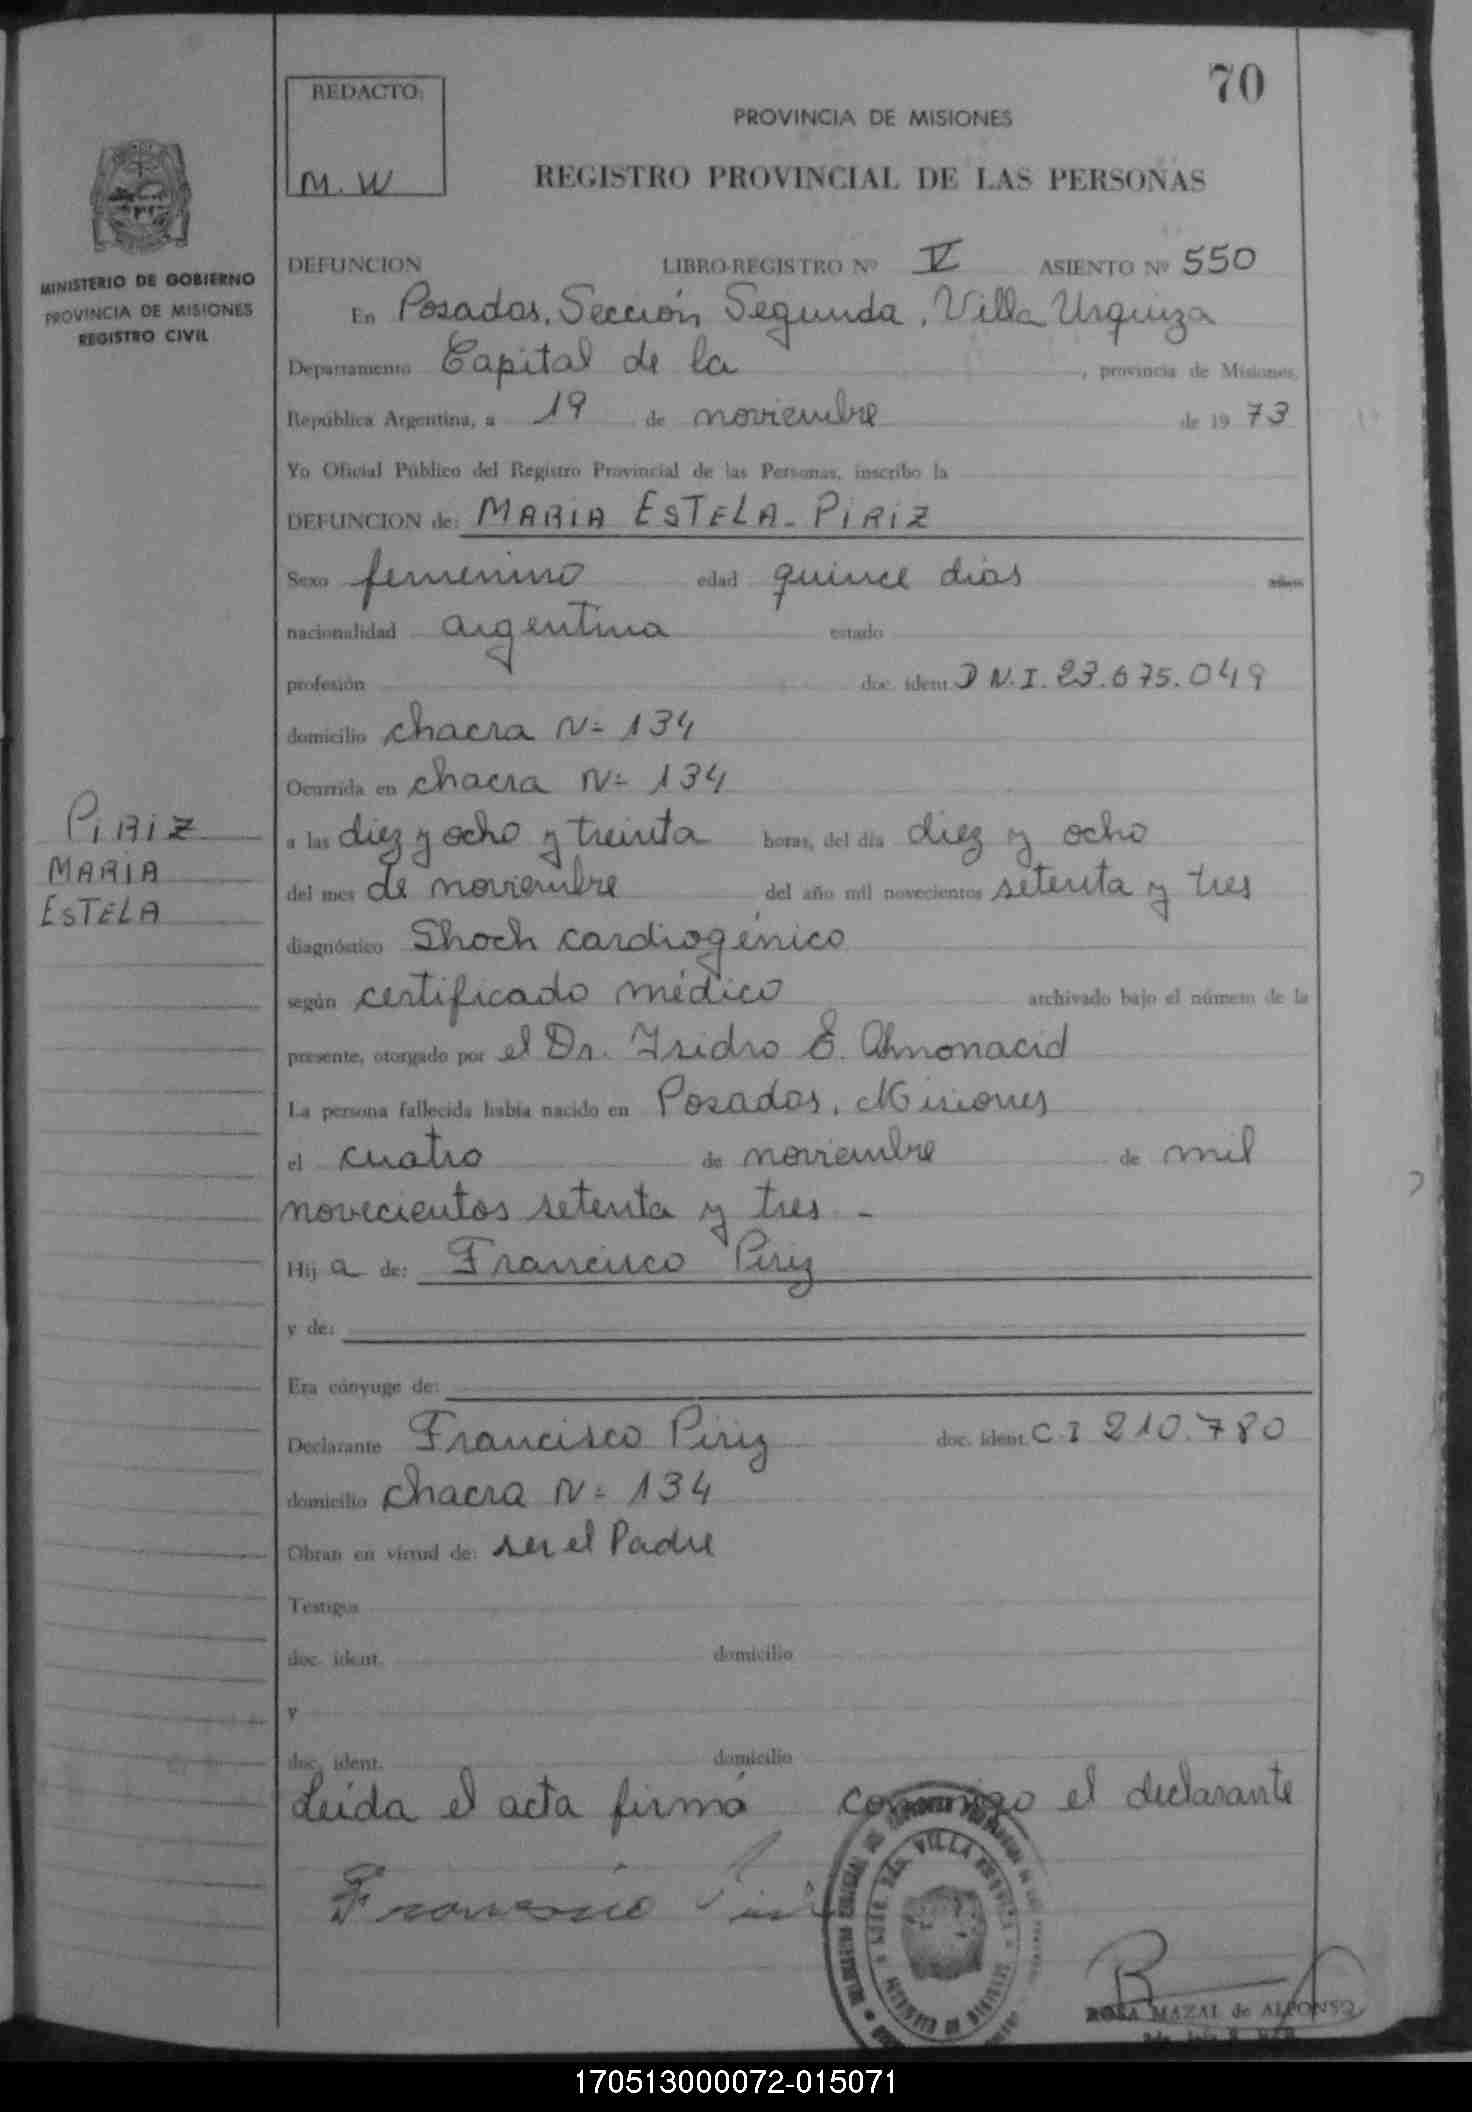 70
REDACTO:
M. W
PROVINCIA DE MISIONES
REGISTRO PROVINCIAL DE LAS PERSONAS
MINISTERIO DE GOBIERNO
PROVINCIA DE MISIONES
REGISTRO CIVIL
DEFUNCION LIBRO-REGISTRO Nº V ASIENTO Nº 550
En Posadas, Sección Segunda, Villa Urquiza
Departamento Capital de la , provincia de Misiones,
República Argentina, a 19 de noviembre de 19 73
Yo Oficial Público del Registro Provincial de las Personas, inscribo la
DEFUNCION de: MARIA ESTELA - PIRIZ
Sexo femenino edad quince dias
nacionalidad argentina estado
profesión doc. ident. D N.I. 23.675.049
domicilio chacra N= 134
Ocurrida en chacra N= 134
PIRIZ
MARIA
ESTELA
a las diez y ocho y treinta horas, del día diez y ocho
del mes de noviembre del año mil novecientos setenta y tres
diagnóstico Shoch cardiogénico
según certificado médico archivado bajo el número de la
presente, otorgado por el Dr. Isidro E. Almonacid
La persona fallecida había nacido en Posadas, Misiones
el cuatro de noviembre de mil
novecientos setenta y tres -
Hij a de: Francisco Piriz
y de:
Era cónyuge de:
Declarante Francisco Piriz doc. ident. C.I 210.780
domicilio chacra N= 134
Obran en virtud de: ser el Padre
Testigos
doc. ident. domicilio
y
doc. ident. domicilio
Leida el acta firmó conmigo el declarante
Francisco
VILLA URQUIZA
ROSA MAZAL de ALFONSO
170513000072-015071